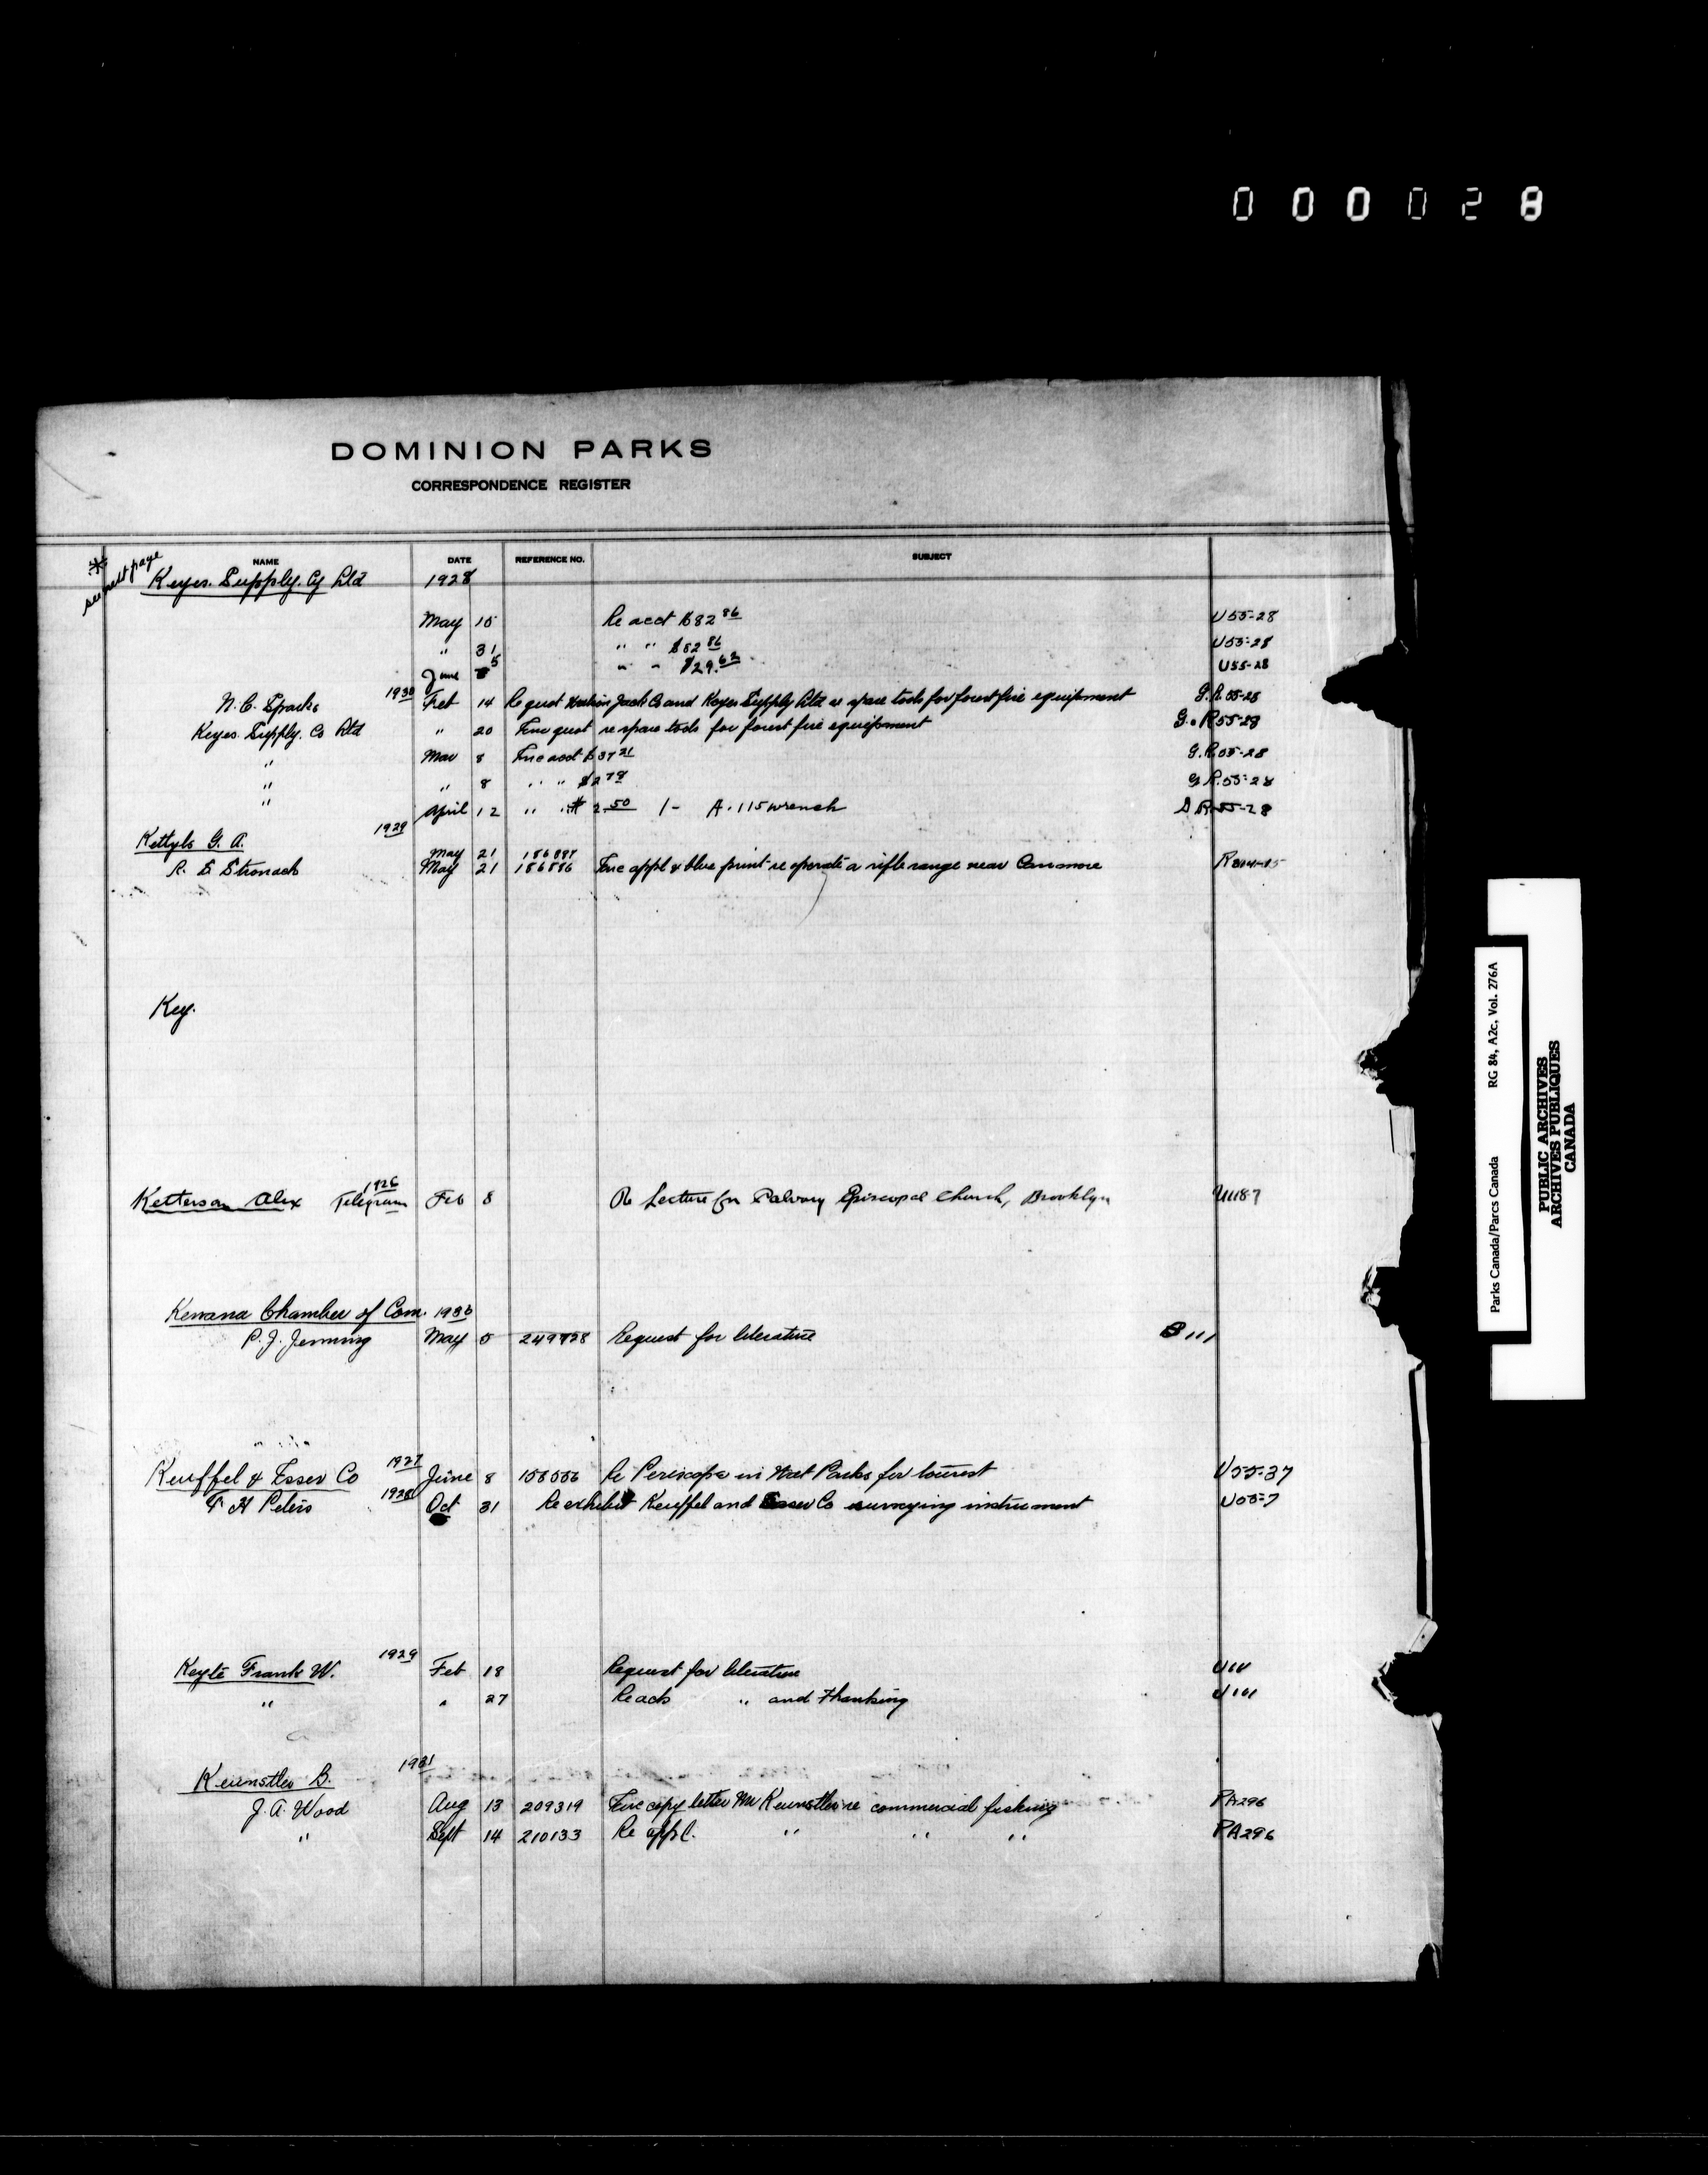 000028
DOMINION PARKS
CORRESPONDENCE REGISTER
NAME DATE REFERENCE NO. SUBJECT
* see next page
Keyes. Supply. Cy Ltd 1928
May 15 Re acct $82 86 U55-28
" 31 " " $82 86 U55-28
June 5 " " $29.63 U55-28
N. C. Sparks 1930 Feb 14 Re quot Jack Co and Keyes Supply Ltd re spare tools for forest fire equipment G.R.55-28
Keyes. Supply. Co Ltd " 20 Enc quot re spare tools for forest fire equipment G.R55-28
" Mar 8 Enc acct $37 21 G.R.55-28
" " 8 " " $2 78 G.R.55-28
" April 12 " " $ 2.50 1- A.115 wrench G.R.55-28
Kettyls G. A. 1929
May 21
R. S Stronach May 21 186886 Enc appl & blue print re operate a rifle range near Canmore
Key.
Ketterson Alex Telegram 1926 Feb 8 Re Lecture for Calvary Episcopal Church, Brooklyn U118-7
Kewana Chamber of Com. 1930
P. J. Jenning May 5 Request for literature
Keuffel & Esser Co 1927 June 8 Re Periscope in Nat Parks for tourist U55-37
F. H Peters 1928 Oct 31 Re exhibit Keuffel and Esser Co surveying instrument U55-7
Keyte Frank W. 1929 Feb 18 Request for literature
" " 27 Re ack " and thanking
Keunstler B. 1931
J. A. Wood Aug 13 209319 Enc copy letter Mr Keunstler re commercial fishing PA296
" Sept 14 210133 Re appl. " " " PA296
Parks Canada/Parcs Canada RG 84, A2c, Vol. 276A
PUBLIC ARCHIVES
ARCHIVES PUBLIQUES
CANADA